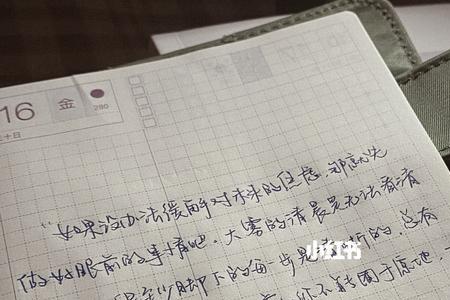 16 金
280
十日
“如果没办法缓解对未来的焦虑，那就先
做好眼前的事情吧。大雾的清晨是无法看清
脚下的每一步是 的，总有
不能困于原地，
小红书